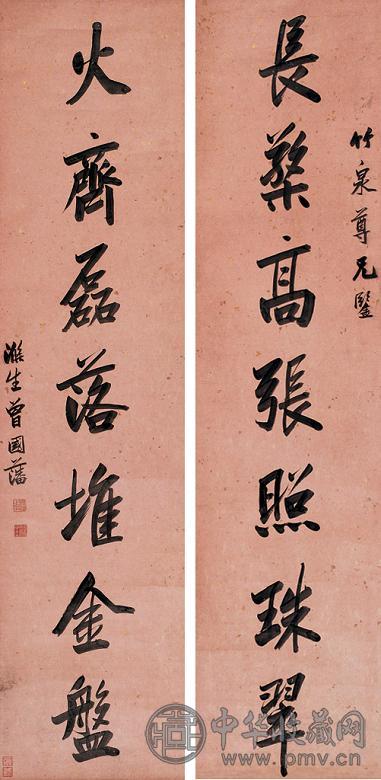 竹泉尊兄鑒
長檠高張照珠翠
火齊磊落堆金盤
滌生曾國藩
中华收藏网
www.pmv.cn